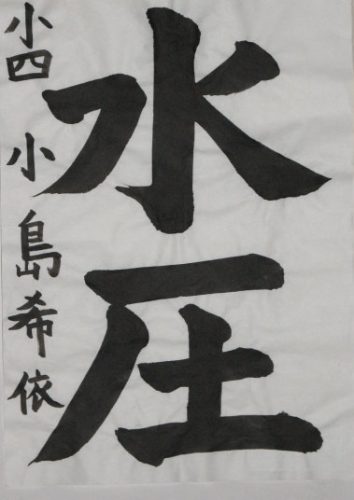 水圧
小四 小島希依